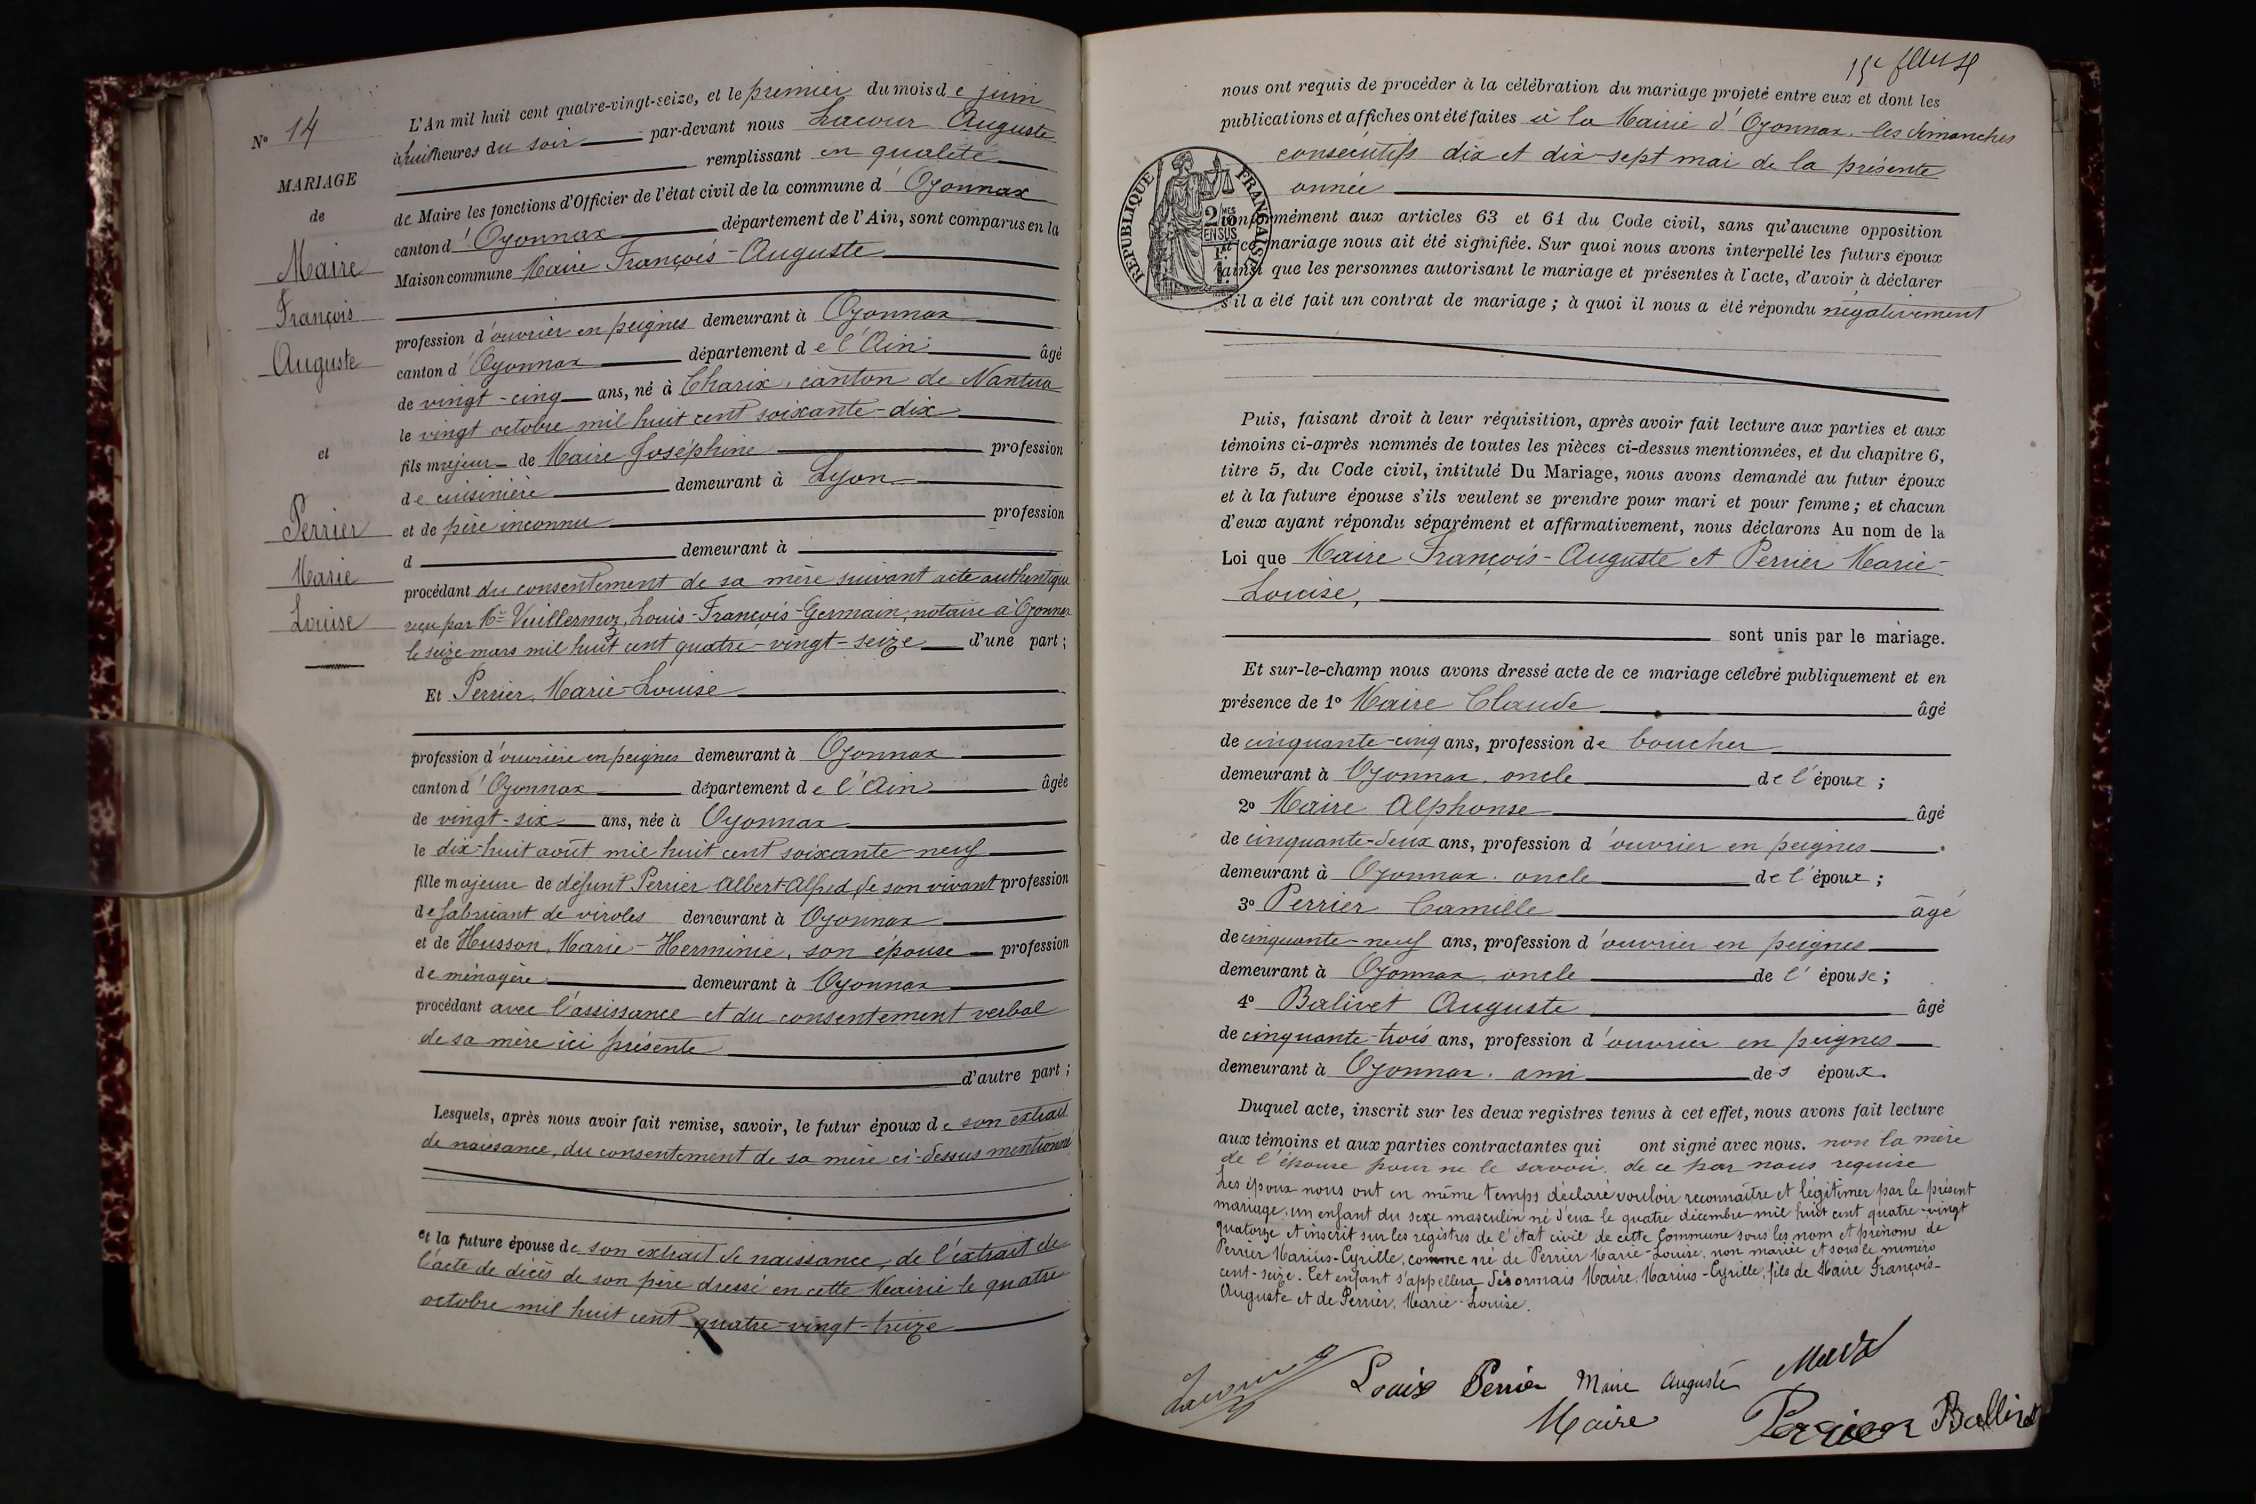 N° 14
MARIAGE
de
Maire
François
Auguste
et
Perrier
Marie
Louise
L'An mil huit cent quatre-vingt-seize, et le premier du mois de juin
à huit heures du soir par-devant nous Lacour Auguste
remplissant en qualité
de Maire les fonctions d'Officier de l'état civil de la commune d'Oyonnax
canton d'Oyonnax département de l'Ain, sont comparus en la
Maison commune Maire François-Auguste
profession d'ouvrier en peignes demeurant à Oyonnax
canton d'Oyonnax département de l'Ain âgé
de vingt-cinq ans, né à Charix, canton de Nantua
le vingt octobre mil huit cent soixante-dix
fils majeur de Maire Joséphine profession
de cuisinière demeurant à Lyon
et de père inconnu profession
d demeurant à
procédant du consentement de sa mère suivant acte authentique
reçu par Me Vuillermoz, Louis-François-Germain, notaire à Oyonnax
le seize mars mil huit cent quatre-vingt-seize d'une part;
Et Perrier, Marie-Louise
profession d'ouvrière en peignes demeurant à Oyonnax
canton d'Oyonnax département de l'Ain âgée
de vingt-six ans, née à Oyonnax
le dix-huit août mil huit cent soixante-neuf
fille majeure de défunt Perrier Albert-Alfred, de son vivant profession
de fabricant de viroles demeurant à Oyonnax
et de Husson, Marie-Herminie, son épouse profession
de ménagère demeurant à Oyonnax
procédant avec l'assissance et du consentement verbal
de sa mère ici présente
d'autre part;
Lesquels, après nous avoir fait remise, savoir, le futur époux de son extrait
de naissance, du consentement de sa mère ci-dessus mentionné
et la future épouse de son extrait de naissance, de l'extrait de
l'acte de décès de son père dressé en cette Mairie le quatre
octobre mil huit cent quatre-vingt-treize
nous ont requis de procéder à la célébration du mariage projeté entre eux et dont les
publications et affiches ont été faites à la Mairie d'Oyonnax, les dimanches
consécutifs dix et dix-sept mai de la présente
année
RÉPUBLIQUE FRANÇAISE
2/10mes
EN SUS
conformément aux articles 63 et 64 du Code civil, sans qu'aucune opposition
à ce mariage nous ait été signifiée. Sur quoi nous avons interpellé les futurs époux
ainsi que les personnes autorisant le mariage et présentes à l'acte, d'avoir à déclarer
s'il a été fait un contrat de mariage; à quoi il nous a été répondu négativement
Puis, faisant droit à leur réquisition, après avoir fait lecture aux parties et aux
témoins ci-après nommés de toutes les pièces ci-dessus mentionnées, et du chapitre 6,
titre 5, du Code civil, intitulé Du Mariage, nous avons demandé au futur époux
et à la future épouse s'ils veulent se prendre pour mari et pour femme; et chacun
d'eux ayant répondu séparément et affirmativement, nous déclarons Au nom de la
Loi que Maire François-Auguste et Perrier Marie-
Louise,
sont unis par le mariage.
Et sur-le-champ nous avons dressé acte de ce mariage célébré publiquement et en
présence de 1° Maire Claude âgé
de cinquante-cinq ans, profession de boucher
demeurant à Oyonnax, oncle de l'époux;
2° Maire Alphonse âgé
de cinquante-deux ans, profession d'ouvrier en peignes
demeurant à Oyonnax, oncle de l'époux;
3° Perrier Camille âgé
de cinquante-neuf ans, profession d'ouvrier en peignes
demeurant à Oyonnax, oncle de l'épouse;
4° Balivet Auguste âgé
de cinquante-trois ans, profession d'ouvrier en peignes
demeurant à Oyonnax, ami des époux.
Duquel acte, inscrit sur les deux registres tenus à cet effet, nous avons fait lecture
aux témoins et aux parties contractantes qui ont signé avec nous. non la mère
de l'épouse pour ne le savoir, de ce par nous requise
Les époux nous ont en même temps déclaré vouloir reconnaître et légitimer par le présent
mariage, un enfant du sexe masculin né d'eux le quatre décembre mil huit cent quatre-vingt
quatorze et inscrit sur les registres de l'état civil de cette Commune sous les nom et prénoms de
Perrier Marius-Cyrille, comme né de Perrier Marie-Louise, non mariée et sous le numéro
cent-seize. Cet enfant s'appellera désormais Maire, Marius-Cyrille, fils de Maire François-
Auguste et de Perrier, Marie-Louise.
Louise Perrier Maire Auguste
Maire Perrier Ballivet